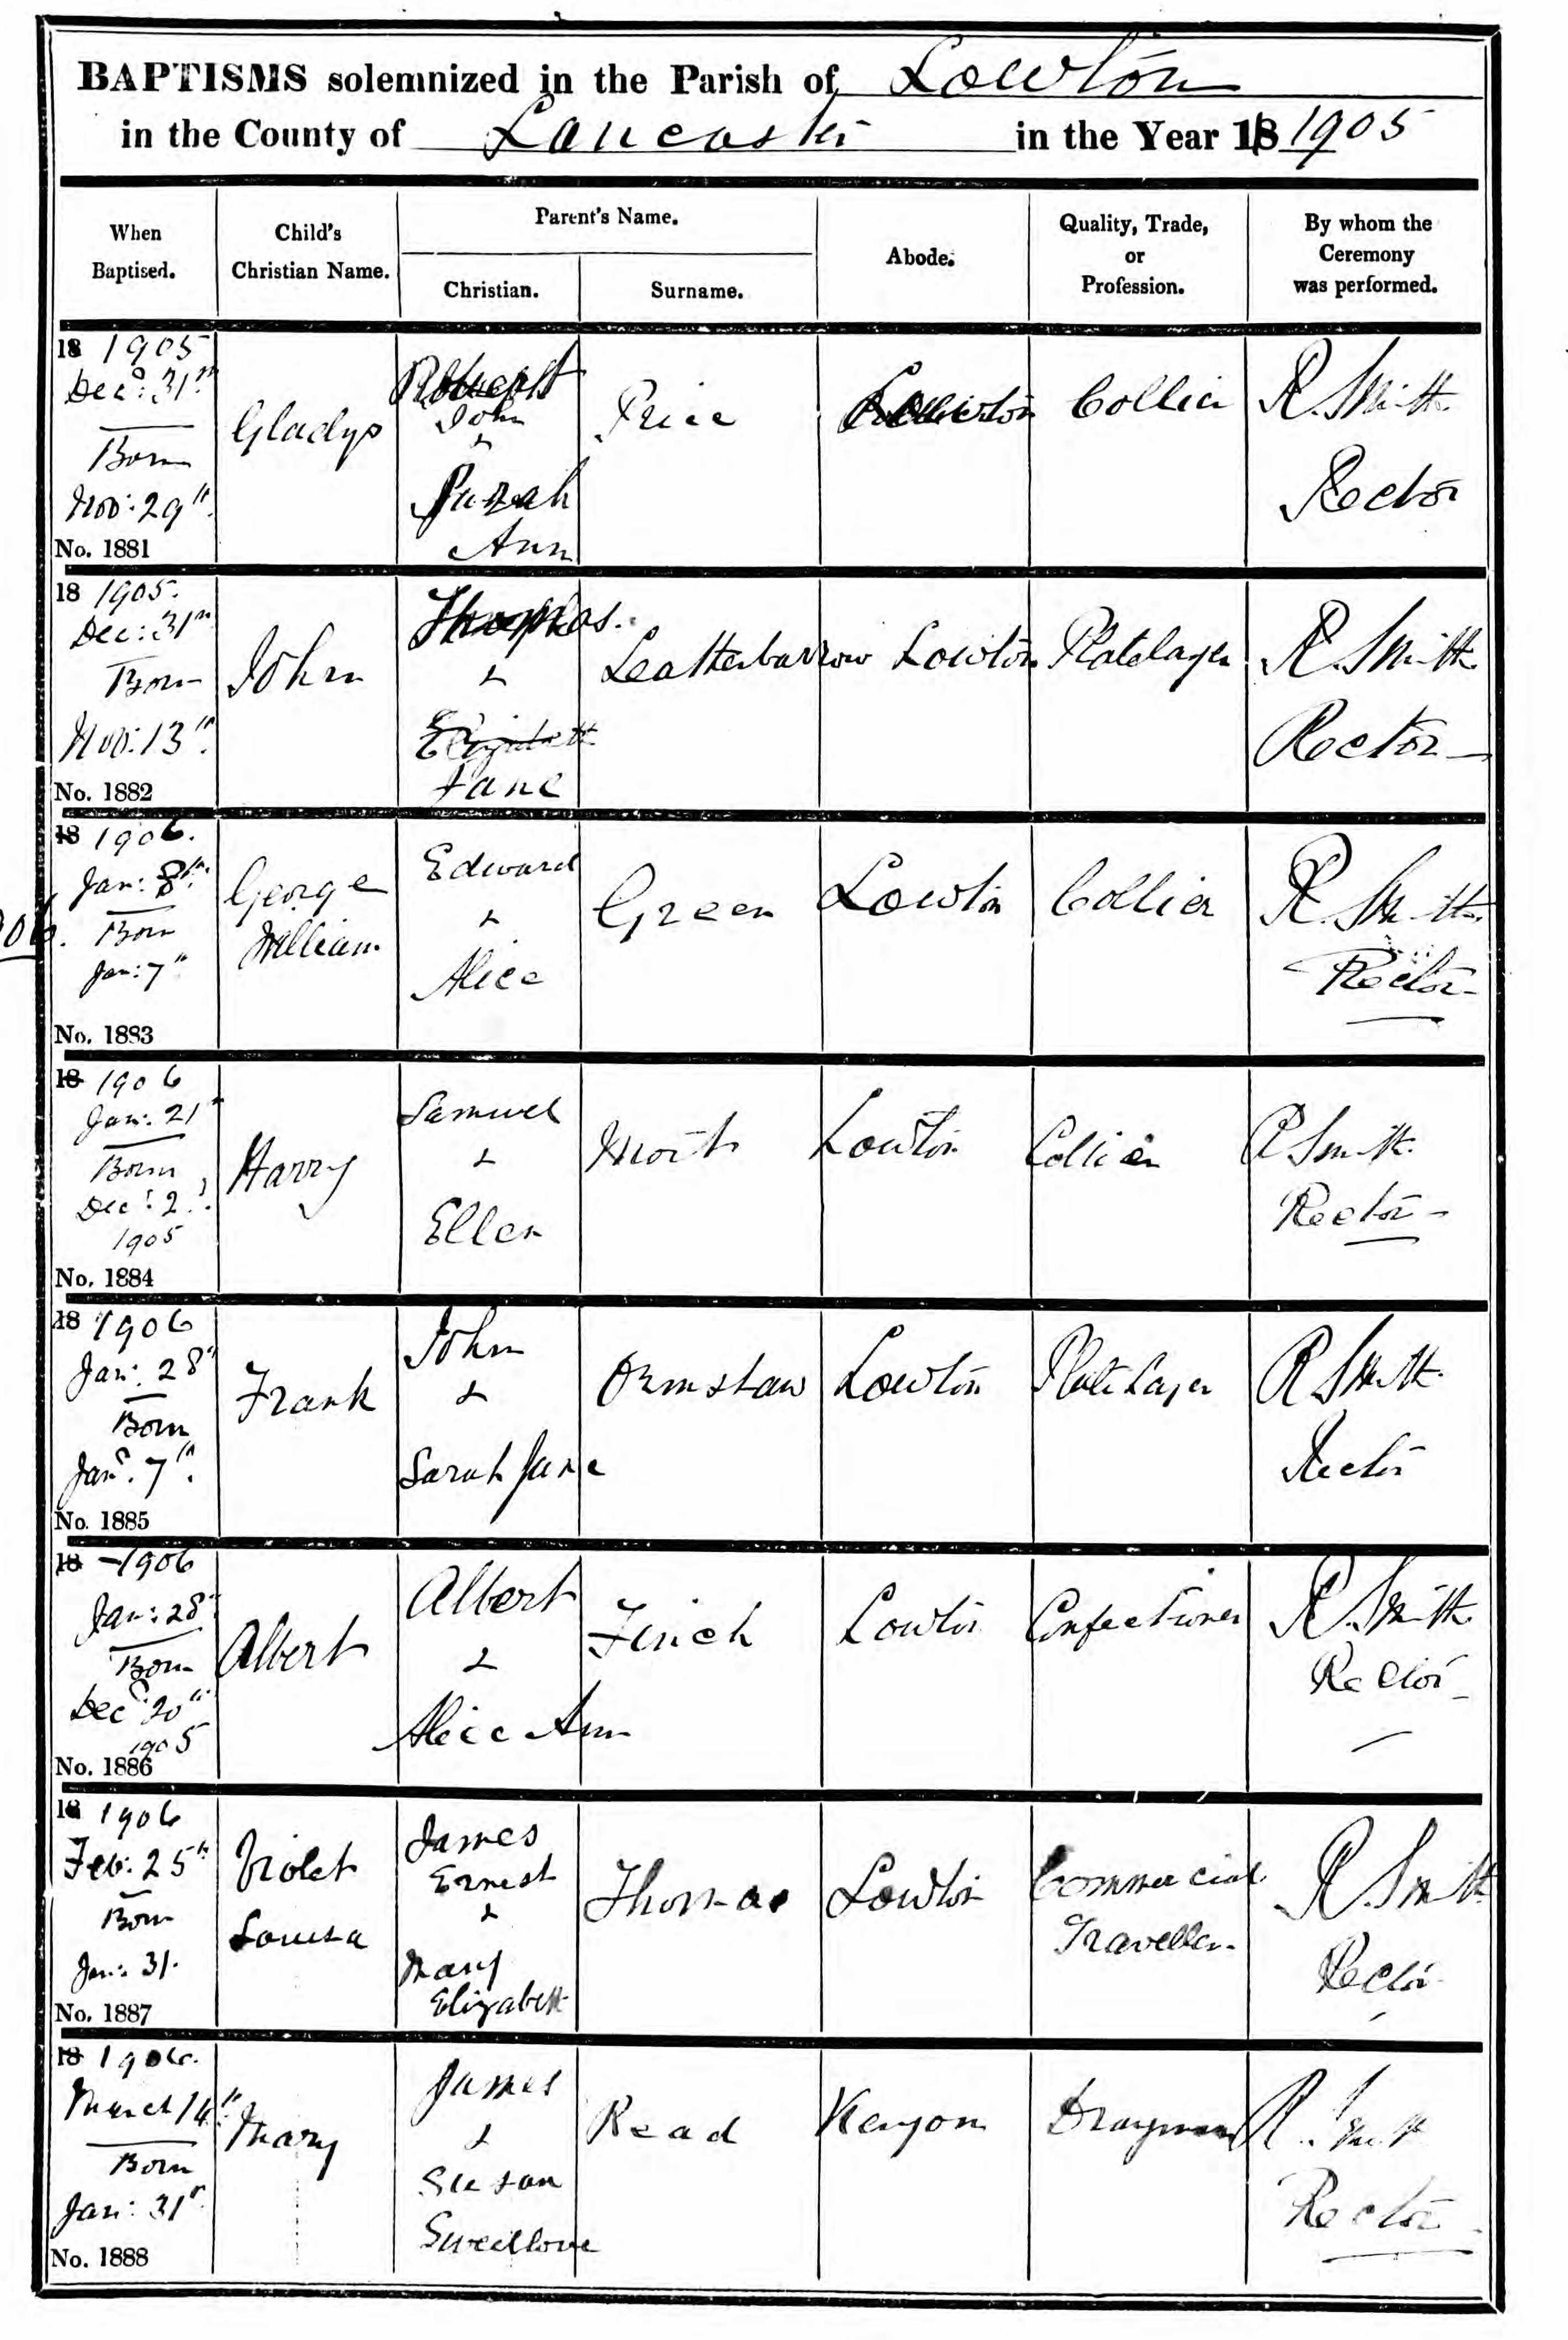 BAPTISMS solemnized in the Parish of Lowton
in the County of Lancaster in the Year 18 1905
When Baptised.
Child's Christian Name.
Parent's Name.
Christian.
Surname.
Abode.
Quality, Trade, or Profession.
By whom the Ceremony was performed.
18 1905
Dec: 31st
Born
Nov: 29th
No. 1881
Gladys
John
&
Sarah
Ann
Price
Lowton
Collier
R. Smith
Rector
18 1905.
Dec: 31st
Born
Nov: 13th
No. 1882
John
Thomas
&
Elizabeth
Jane
Leatherbarrow
Lowton
Platelayer
R. Smith
Rector
18 1906.
Jan: 8th
Born
Jan: 7th
No. 1883
George
William
Edward
&
Alice
Green
Lowton
Collier
R. Smith
Rector
18 1906
Jan: 21st
Born
Dec: 2
1905
No. 1884
Harry
Samuel
&
Ellen
Lowton
Collier
R Smith
Rector
18 1906
Jan: 28th
Born
Jan: 7th
No. 1885
Frank
John
&
Sarah Jane
Ormshaw
Lowton
Plate Layer
R Smith
Rector
18 1906
Jan: 28th
Born
Dec 20th
1905
No. 1886
Albert
Albert
&
Alice Ann
Finch
Lowton
Confectioner
R. Smith
Rector
18 1906
Feb: 25th
Born
Jan: 31.
No. 1887
Violet
Louisa
James
Ernest
&
Mary
Elizabeth
Thomas
Lowton
Commercial
Traveller
R. Smith
Rector
18 1906.
March 14th
Born
Jan: 31st
No. 1888
Mary
James
&
Susan
Sweetlove
Read
Kenyon
Drayman
R. Smith
Rector